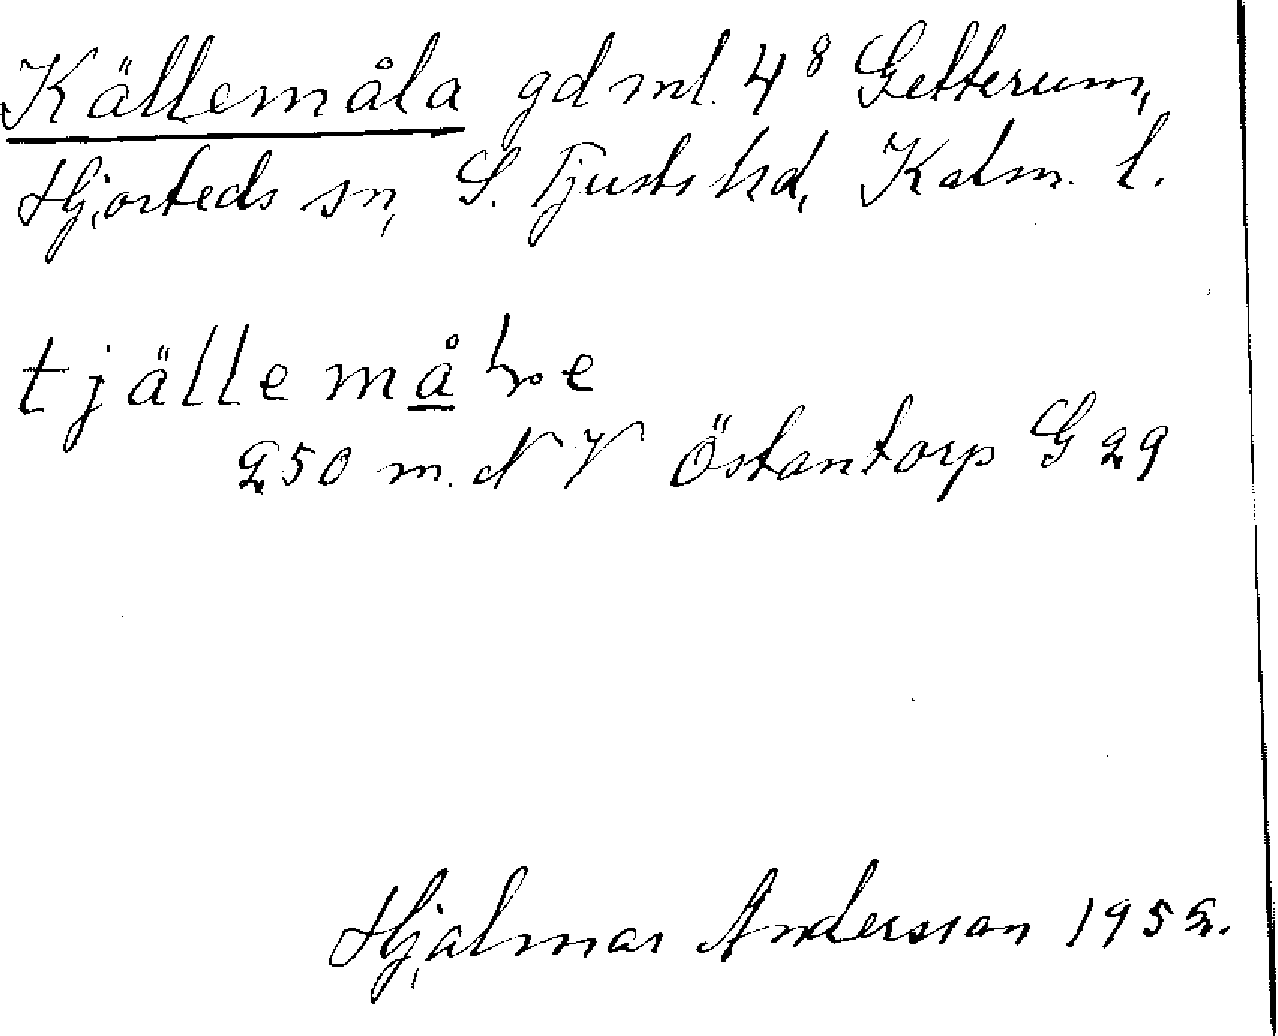 Källemåla gdml. 4⁸ Getterum,
Hjorteds sn, S. Tjusts hd, Kalm. l.
tjällemåḷe
250 m. NV Östantorp G 29
Hjalmar Andersson 1952.